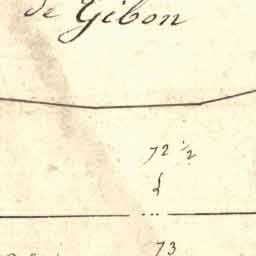 de Gibon
72 1/2
73